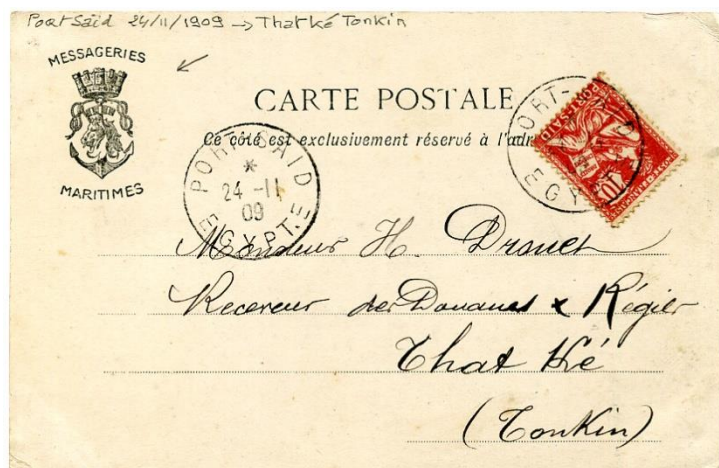 Port Saïd 24/11/1909 → That ké Tonkin
MESSAGERIES
MARITIMES
CARTE POSTALE
Ce côté est exclusivement réservé à l'adr
PORT-SAID
*
24 -11
09
EGYPTE
PORT-
EGYPTE
10
Monsieur H. Drouet
Receveur des Douanes & Régies
That Khé
(Tonkin)